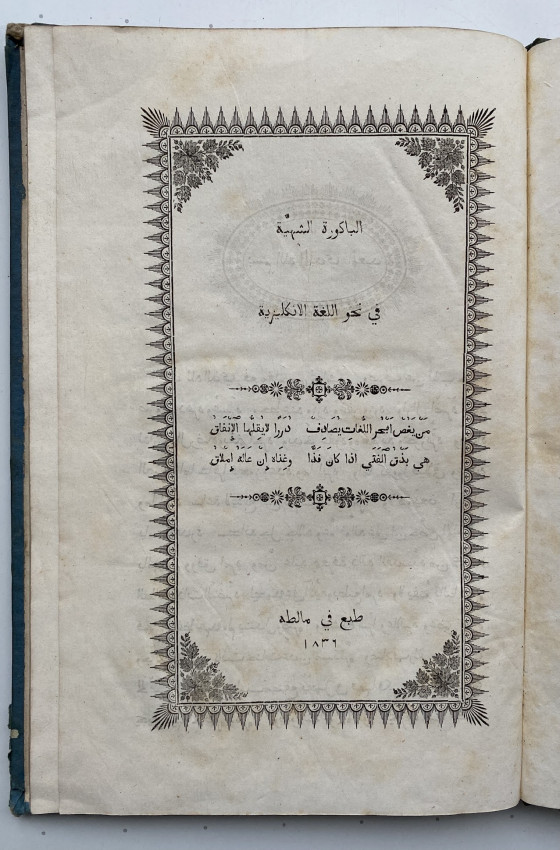 الباكورة الشهيَّة
في نحو اللغة الانكليزية
مَن يَغُص اَبْحُر اللُّغات يصَادِف دُرَرًا لا يُقلّها الإنْفَاقُ
هي بَذْق الفَتَي اذا كانَ فَذًّا وغنَاه إنْ عَالَهُ إمْلاقُ
طبع في مالطه
١٨٣٦